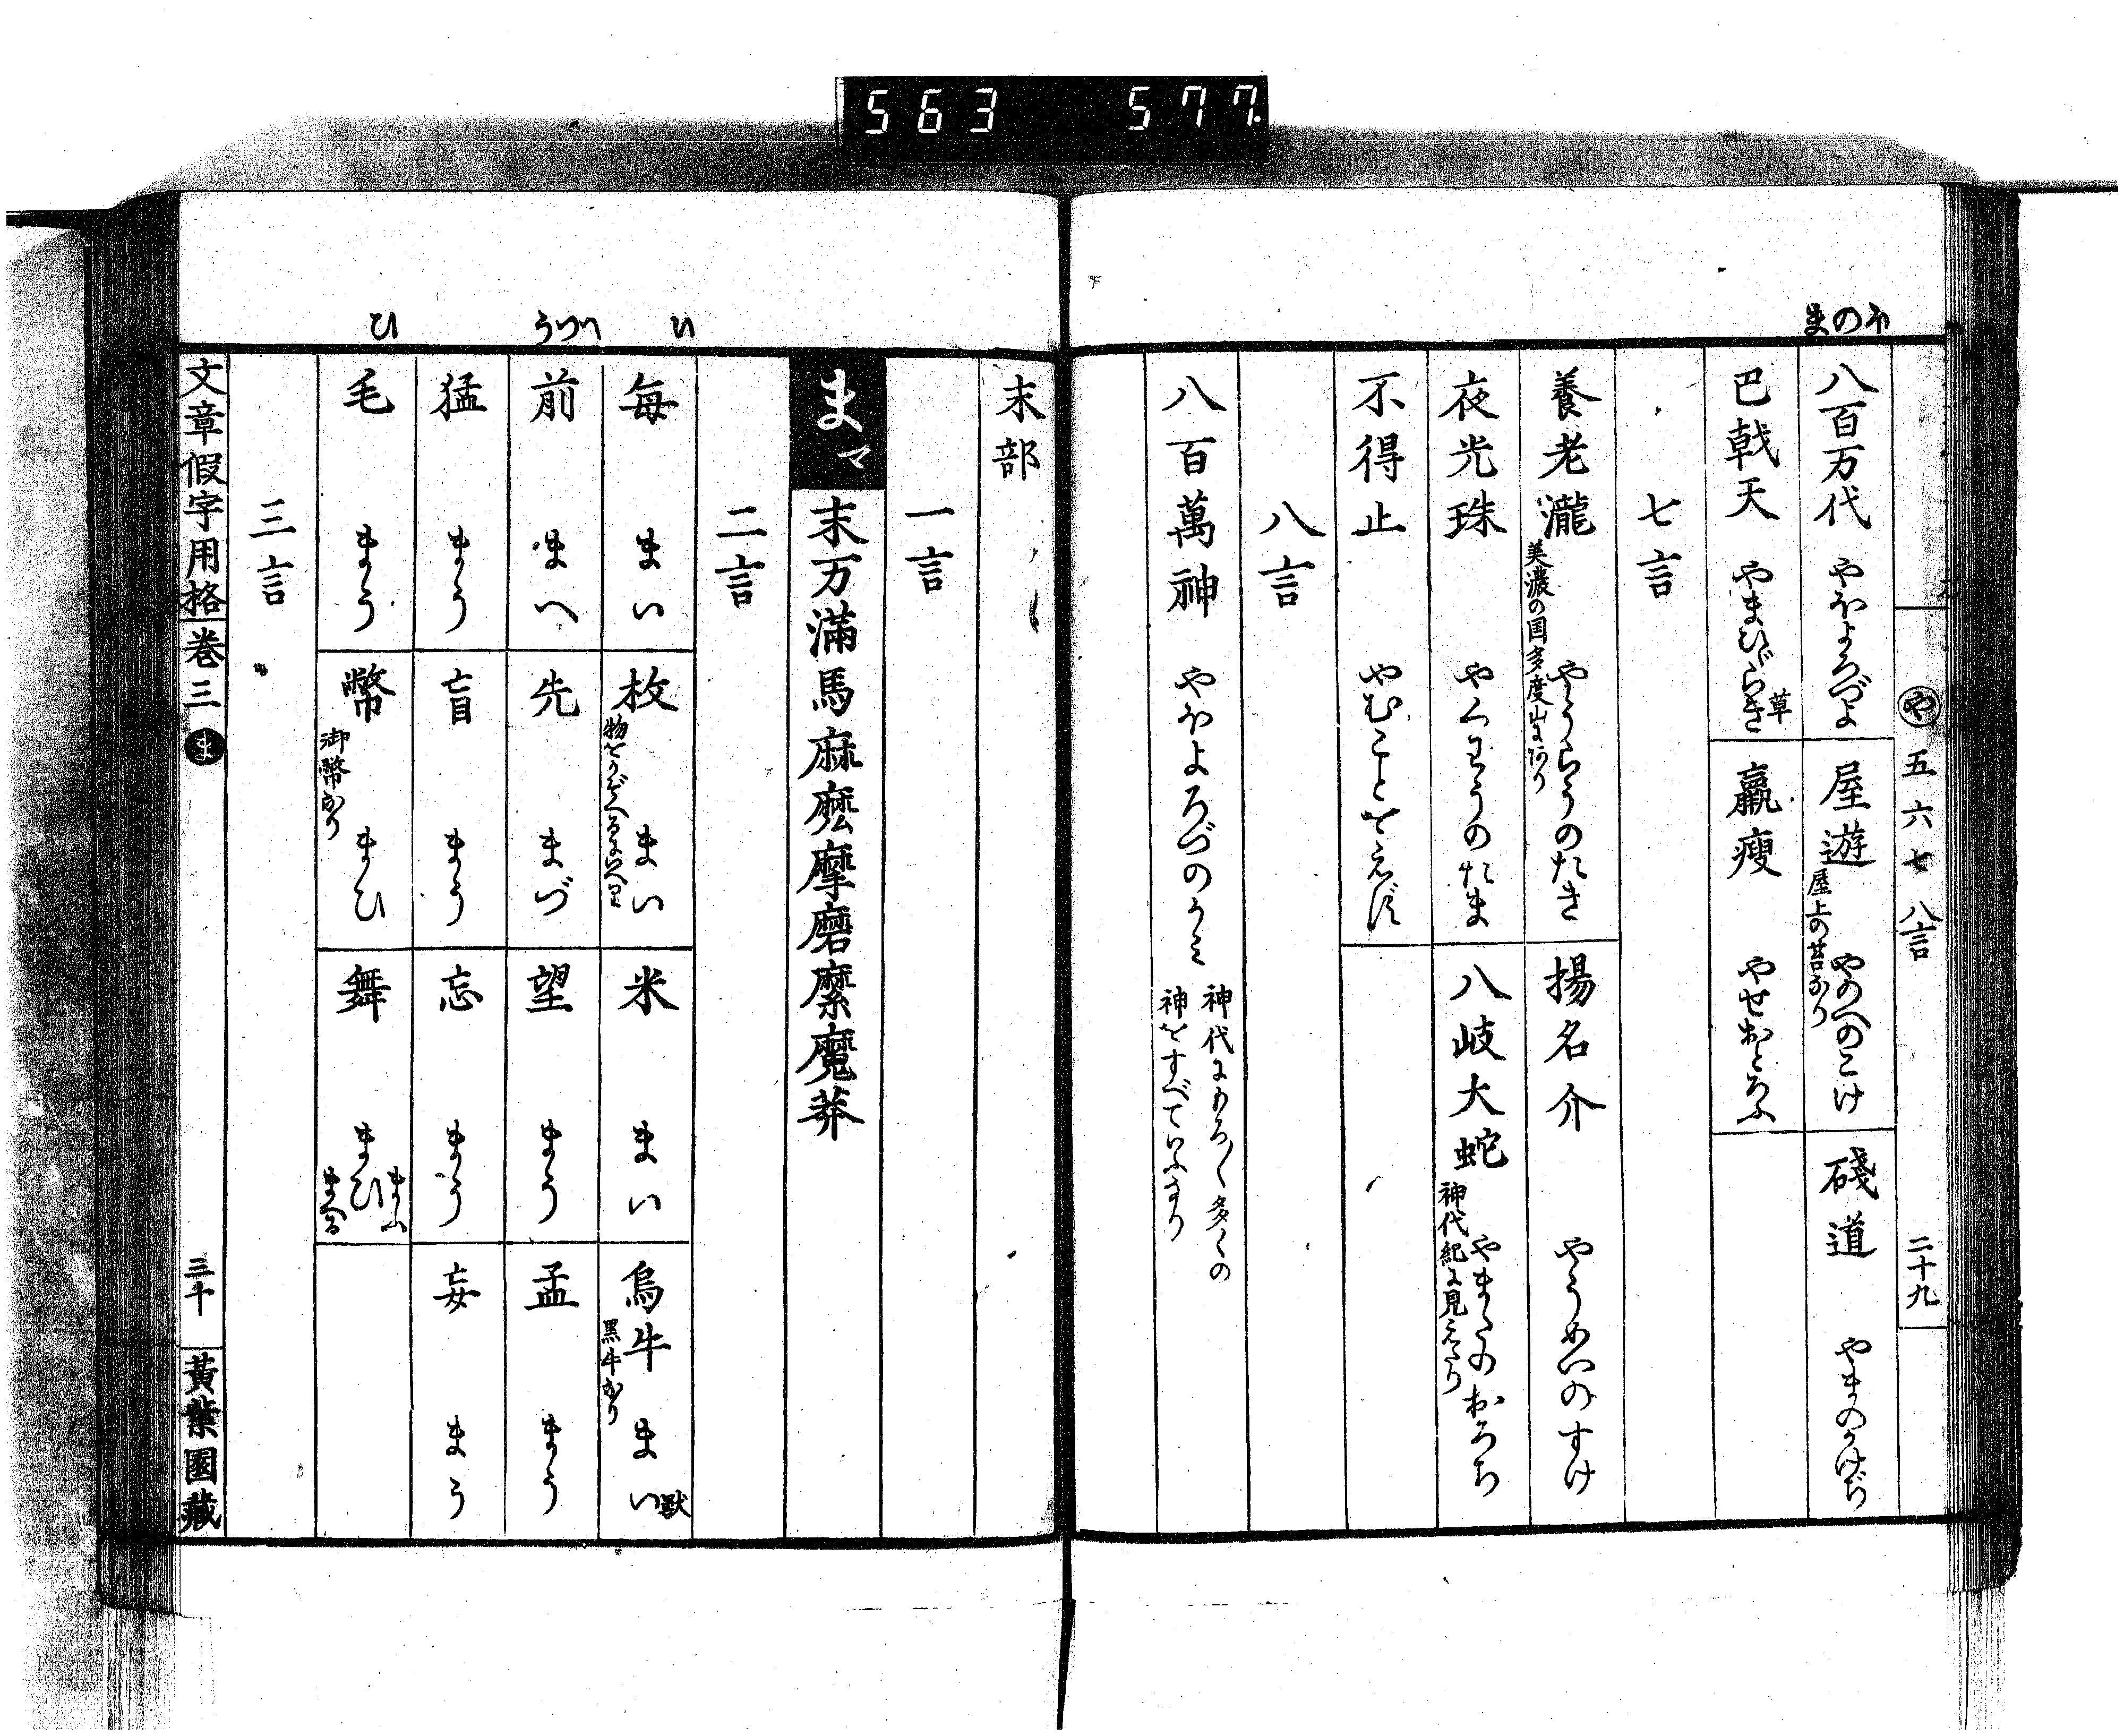 563 577
まのや
や 五六七八言 二十九
八百万代 やほよろづよ
屋遊 やのへのこけ
屋上の苔なり
磴道 やまのかけぢ
巴戟天 やまひゞらき 草
羸痩 やせおとろふ
七言
養老瀧 やうらうのたき
美濃の国多度山にあり
揚名介 やうめいのすけ
夜光珠 やくわうのたま
八岐大蛇 やまたのおろち
神代紀に見えたり
不得止 やむことをえず
八言
八百萬神 やほよろづのかミ
神代にあろ〱多くの
神をすべていふなり
末部
一言
まマ 末万満馬麻麽摩磨縻魔莽
二言
い
毎 まい
枚 まい
物をかぞへるにいへり
米 まい
烏牛 まい 獣
黒牛なり
うつへ
前 まへ
先 まづ
望 まう
孟 まう
猛 まう
盲 まう
忘 まう
妄 まう
ひ
毛 まう
幣 まひ
御幣なり
舞 まひ
まふ
まへる
三言
文章假字用格 巻三 ま 三十 黄葉園藏